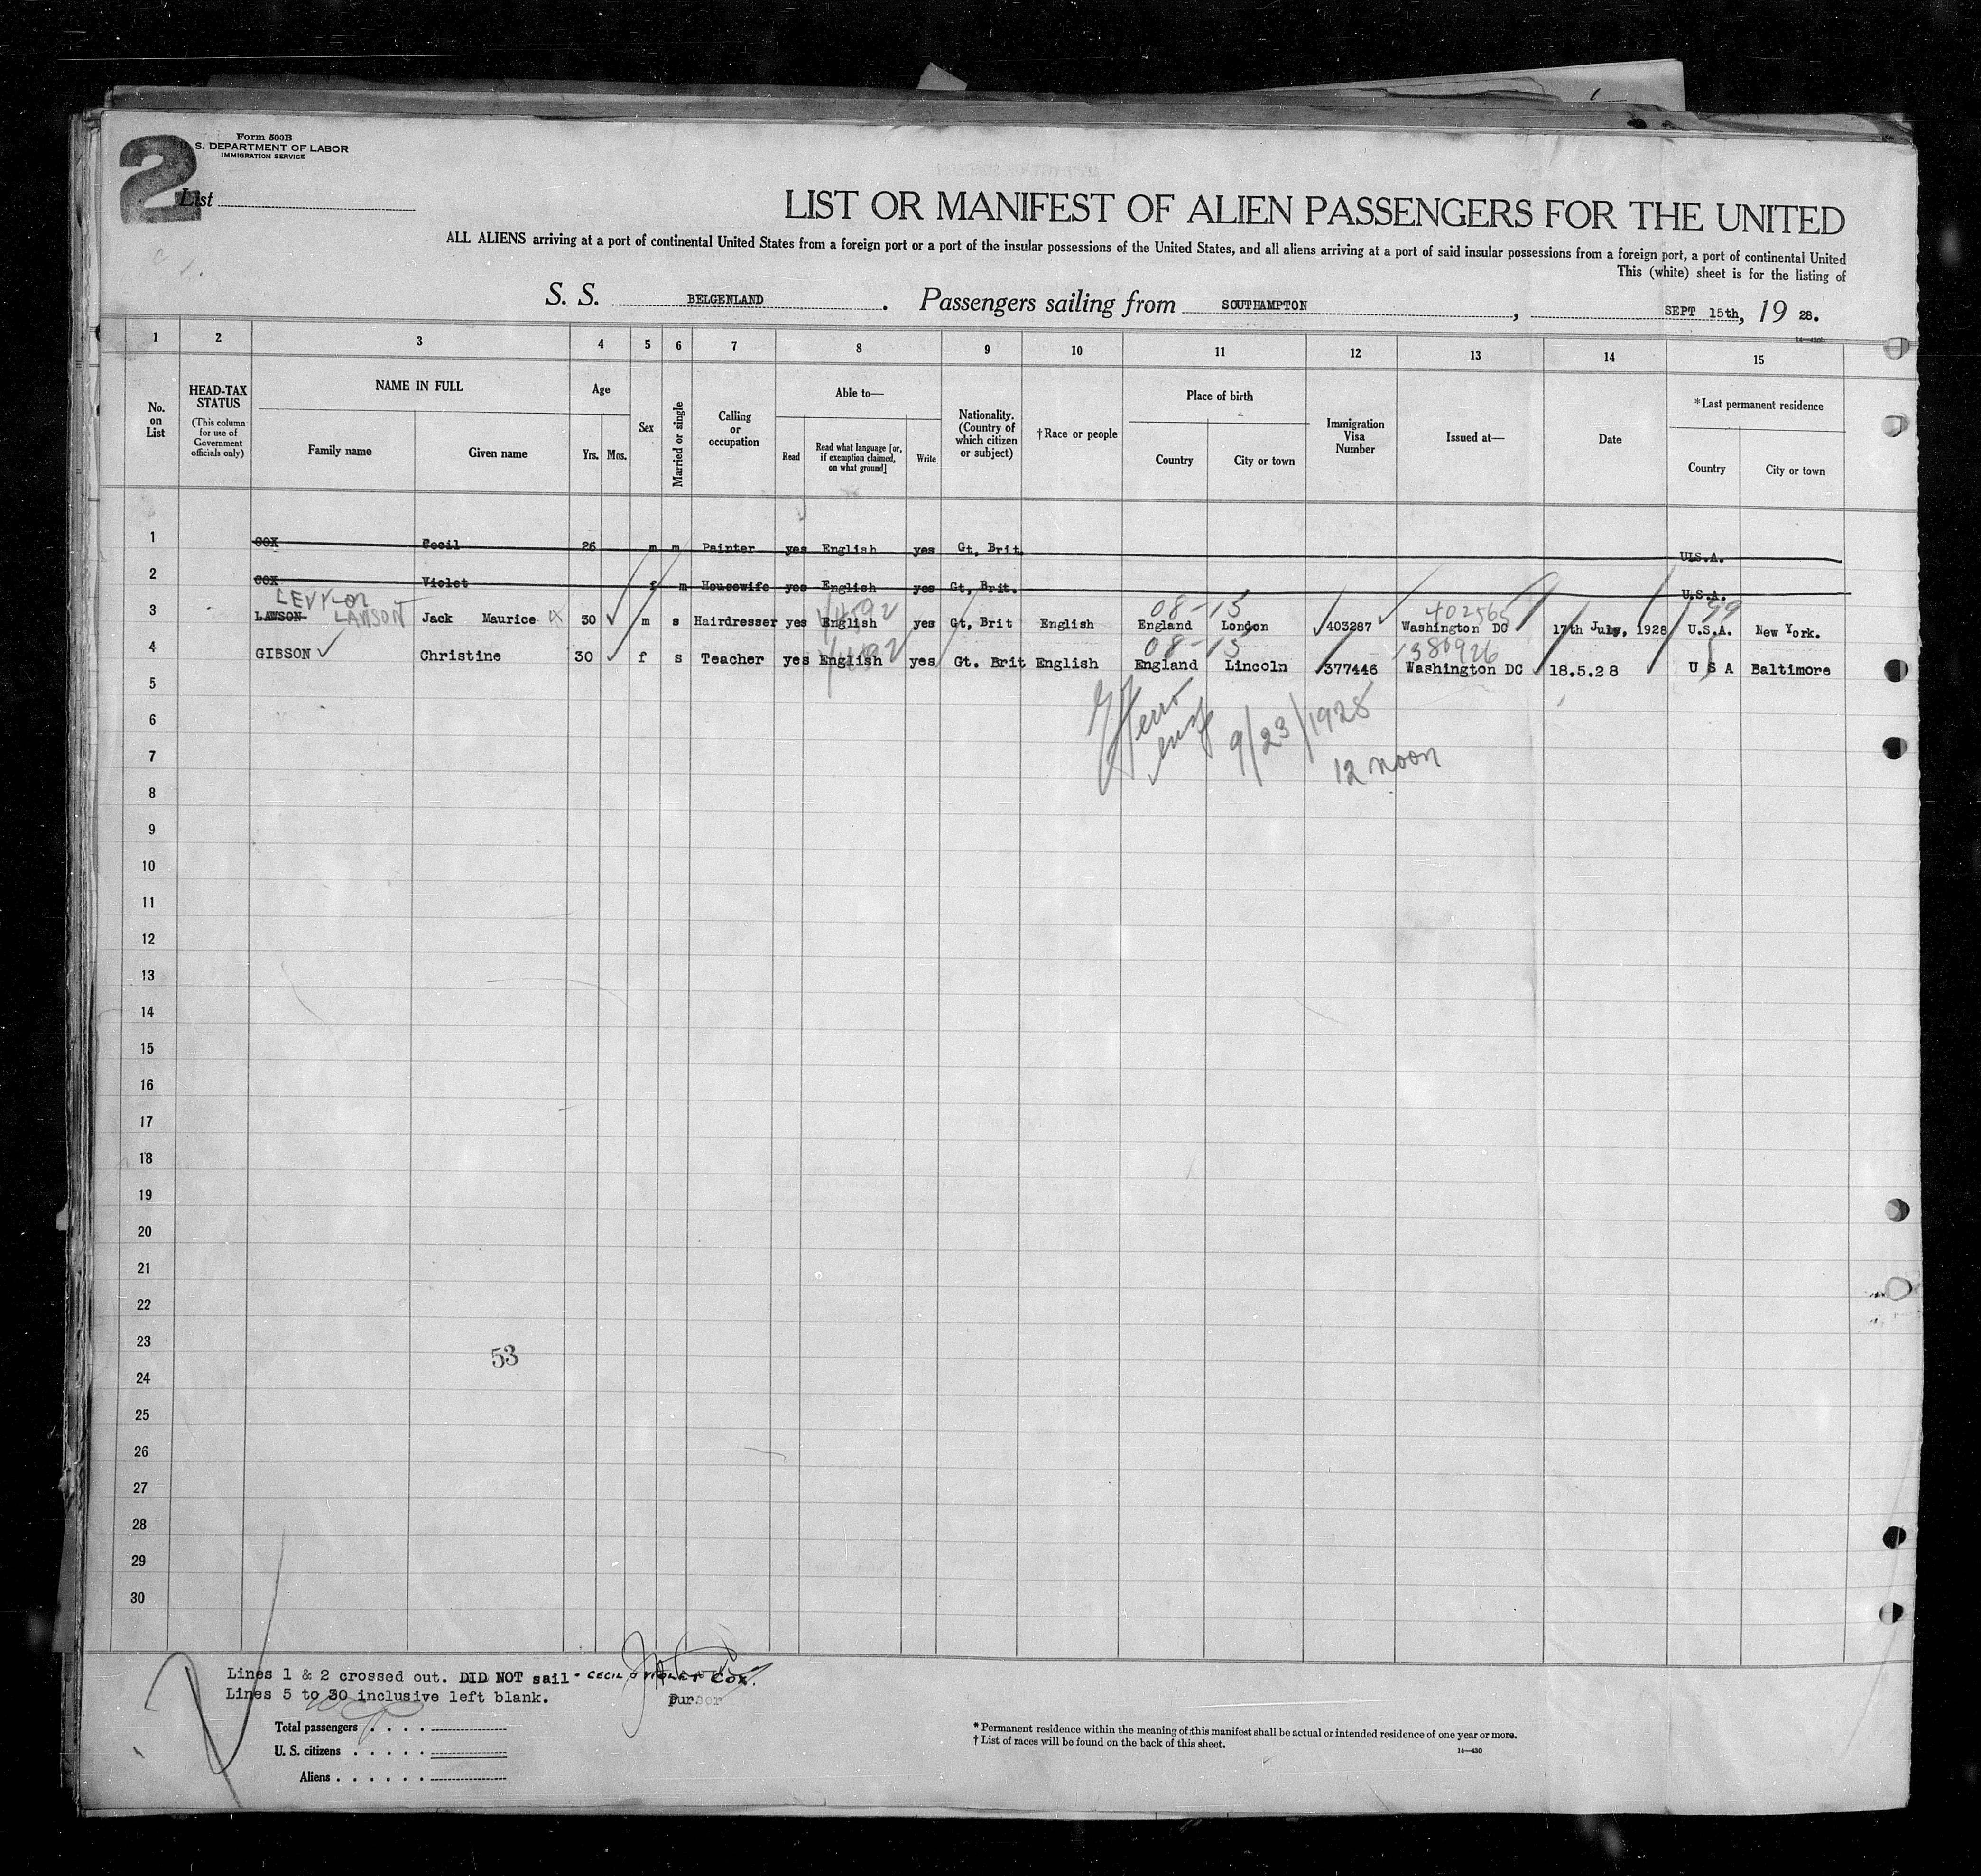 2
Form 500B
U. S. DEPARTMENT OF LABOR
IMMIGRATION SERVICE
List
LIST OR MANIFEST OF ALIEN PASSENGERS FOR THE UNITED
ALL ALIENS arriving at a port of continental United States from a foreign port or a port of the insular possessions of the United States, and all aliens arriving at a port of said insular possessions from a foreign port, a port of continental United
This (white) sheet is for the listing of
S. S. BELGENLAND. Passengers sailing from SOUTHAMPTON, SEPT 15th, 19 28.
1 2 3 4 5 6 7 8 9 10 11 12 13 14 15
No. on List
HEAD-TAX STATUS
(This column for use of Government officials only)
NAME IN FULL
Family name Given name
Age
Yrs. Mos.
Sex
Married or single
Calling or occupation
Able to—
Read
Read what language [or, if exemption claimed, on what ground]
Write
Nationality. (Country of which citizen or subject)
†Race or people
Place of birth
Country City or town
Immigration Visa Number
Issued at—
Date
*Last permanent residence
Country City or town
1 COX Cecil 26 m m Painter yes English yes Gt, Brit. U.S.A.
2 COX Violet f m Housewife yes English yes Gt, Brit. U.S.A.
LEVY-or 08-15 402565 99
3 LAWSON LAWSON Jack Maurice 30 m s Hairdresser yes English yes Gt, Brit English England London 403287 Washington DC 17th July, 1928 U.S.A. New York.
08-15
4 GIBSON Christine 30 f s Teacher yes English yes Gt. Brit English England Lincoln 377446 Washington DC 18.5.28 U S A Baltimore
5
6
9/23/1928
7
12 noon
8
9
10
11
12
13
14
15
16
17
18
19
20
21
22
23
53
24
25
26
27
28
29
30
Lines 1 & 2 crossed out. DID NOT sail - CECIL & VIOLET COX.
Lines 5 to 30 inclusive left blank.
purser
Total passengers
U. S. citizens
Aliens
* Permanent residence within the meaning of this manifest shall be actual or intended residence of one year or more.
† List of races will be found on the back of this sheet.
14—430